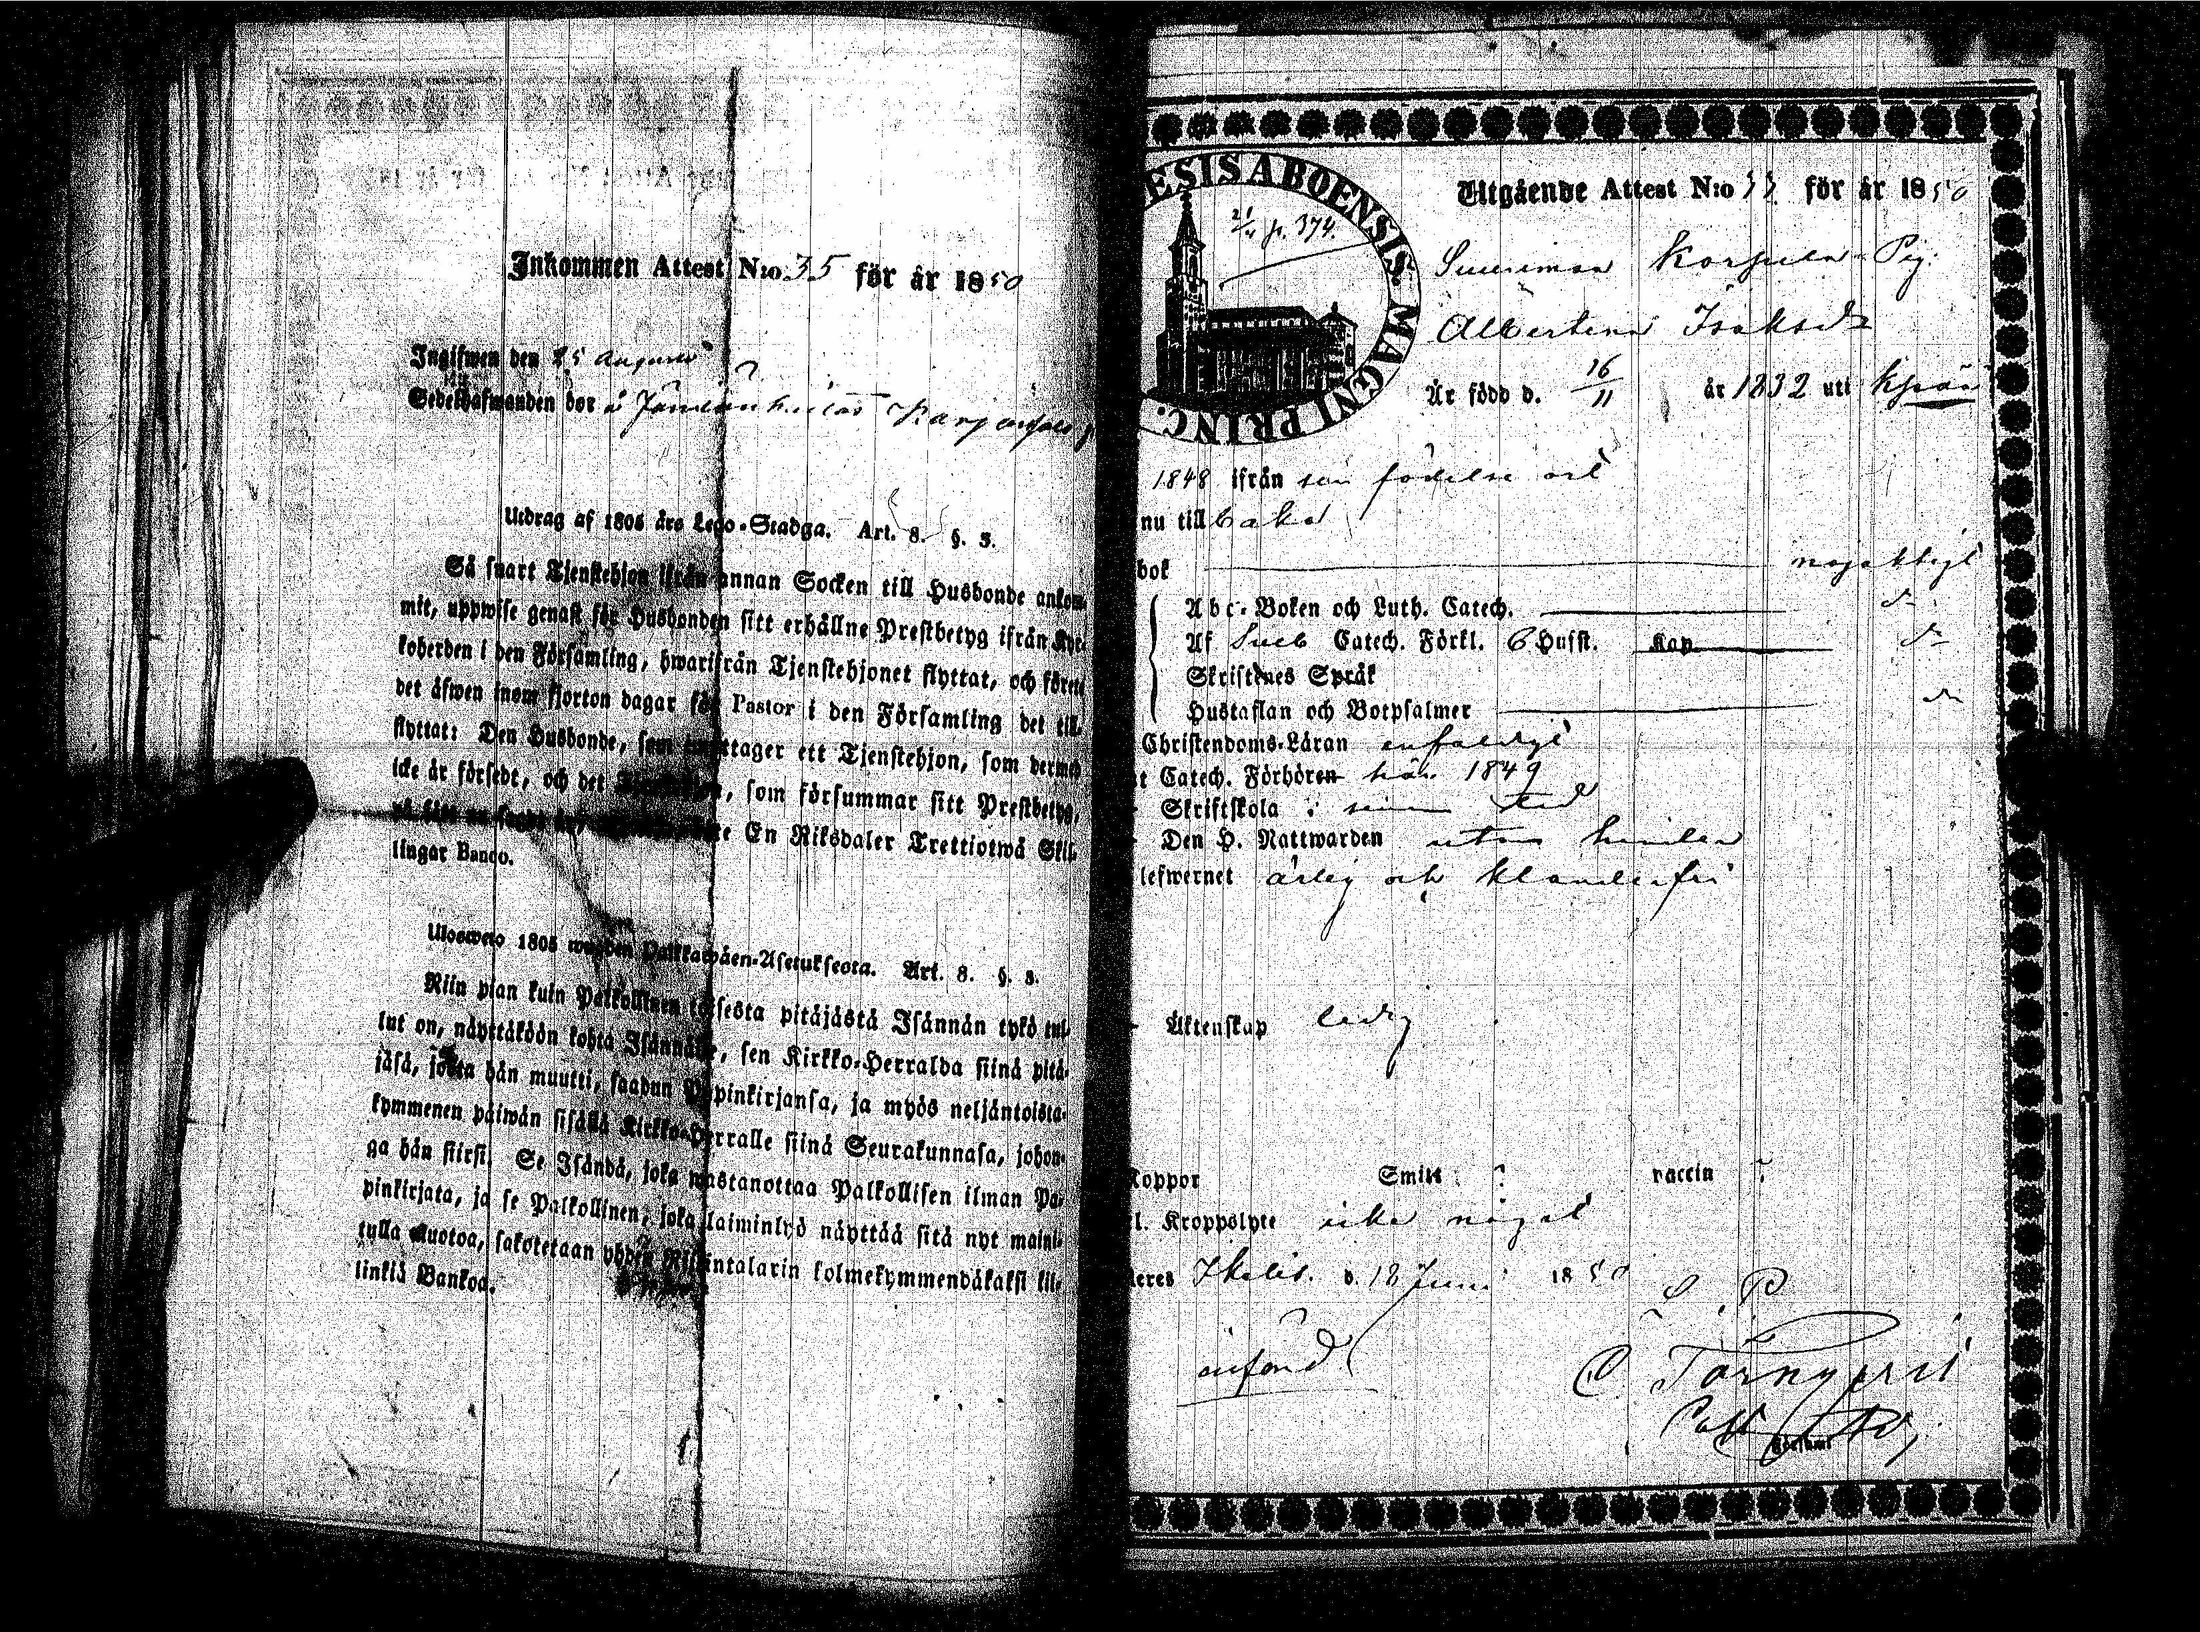 Inkommen Attest N:o 35 för år 1850
Ingifwen den 25 Augusti
Sedelhafwanden bor å
Utdrag af 1805 års Lego-Stadga. Art. 8. §. 3.
Så snart Tjenstehjon ifrån annan Socken till Husbonde ankom-
mit, uppwise genast för Husbonden sitt erhållne Prestbetyg ifrån Kyr-
koherden i den Församling, hwarifrån Tjenstehjonet flyttat, och förete
det äfwen inom fjorton dagar för Pastor i den Församling det till-
flyttat: Den Husbonde, som emottager ett Tjenstehjon, som dermed
icke är försedt, och det Tjenstehjon, som försummar sitt Prestbetyg,
En Riksdaler Trettiotwå Skil-
lingar Banco.
Ulosweto 1805 wuoden Palkkawäen-Asetuksesta. Art. 8. §. 3.
Niin pian kuin Palkollinen toisesta pitäjästä Isännän tykö tul-
lut on, näyttäköön kohta Isännälle, sen Kirkko-Herralda siinä pitä-
jäsä, josta hän muutti, saadun Papinkirjansa, ja myös neljäntoista-
kymmenen päiwän sisällä Kirkko-Herralle siinä Seurakunnasa, johon-
ga hän siirsi. Se Isändä, joka wastanottaa Palkollisen ilman Pa-
pinkirjata, ja se Palkollinen, joka laiminlyö näyttää sitä nyt maini-
tulla muotoa, sakotetaan yhden Riksintalarin kolmekymmendäkaksi kil-
linkiä Bankoa.
ESIS ABOENSIS. MAGNI PRINC.
p. 374.
Utgående Attest N:o 33 för år 1850
Korpula Pig.
Albertina Isaksdr
Är född d. 16/11 år 1832 uti
1848 ifrån sin födelse ort
nu tillbaka
bok nöjaktigt
Abc-Boken och Luth. Catech. do
Af Sveb Catech. Förkl. 6 Husst. Kap do
Skristenes Språk
Hustaflan och Botpsalmer do
Christendoms-Läran enfaldigt
t Catech. Förhören här 1849
Skriftskola i sinom tid
Den H. Nattwarden utan hinder
lefwernet ärlig och klanderfri
Äktenskap ledig
Koppor Smitt ? vaccin ?
l. Kroppslyte icke något
eres Ikalis. d. 18 Juni 1850
C. Törnqvist